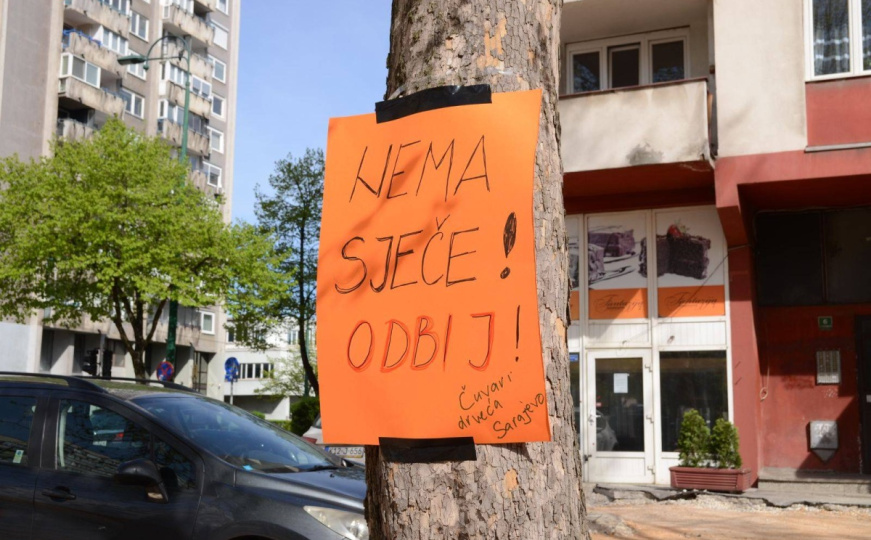 NEMA
SJEČE!
ODBIJ!
Čuvari
drveća
Sarajevo